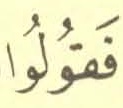 فَقُولُوا